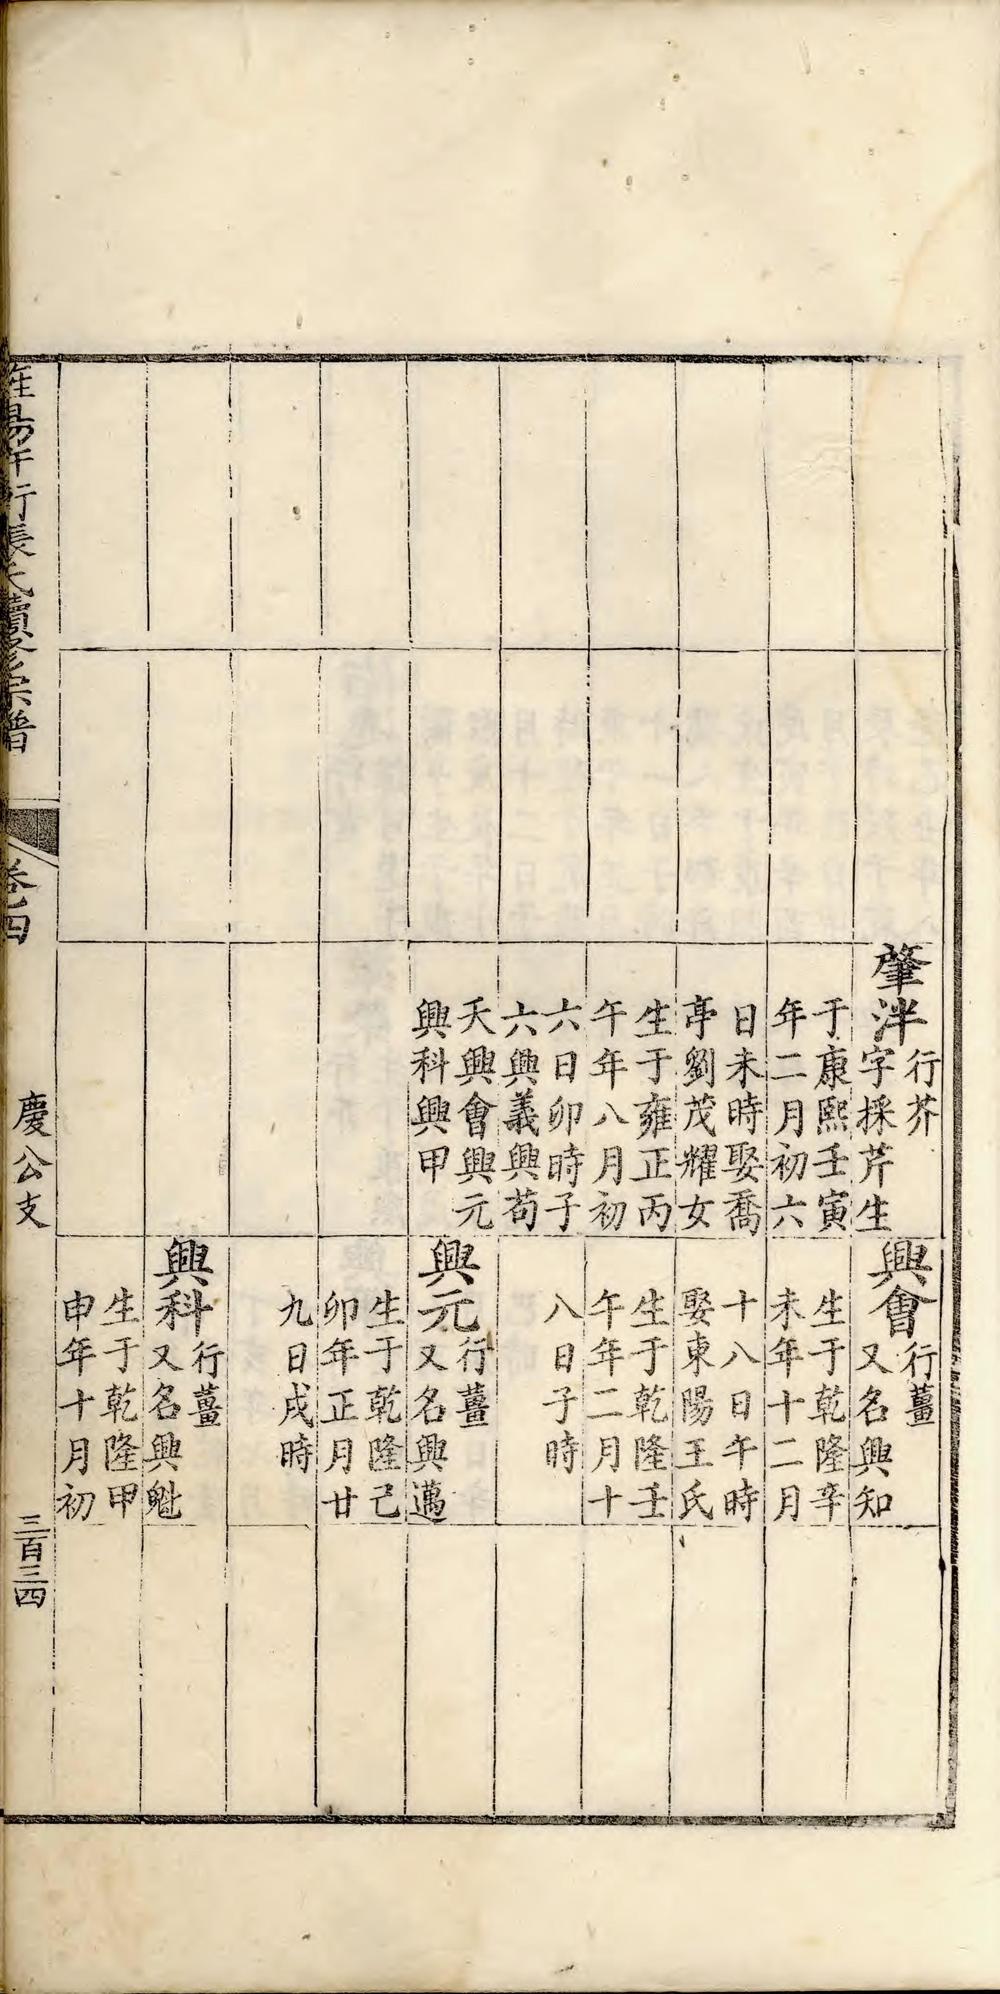 肇泮
行芥
字採芹生
于康熙壬寅
年二月初六
日未時娶喬
亭劉茂耀女
生于雍正丙
午年八月初
六日卯時子
六興義興苟
夭興會興元
興科興甲
興會
行薑
又名興知
生于乾隆辛
未年十二月
十八日午時
娶東陽王氏
生于乾隆壬
午年二月十
八日子時
興元
行薑
又名興邁
生于乾隆己
卯年正月廿
九日戌時
興科
行薑
又名興魁
生于乾隆甲
申年十月初
行張氏續修宗譜
卷四
慶公支
三百三四